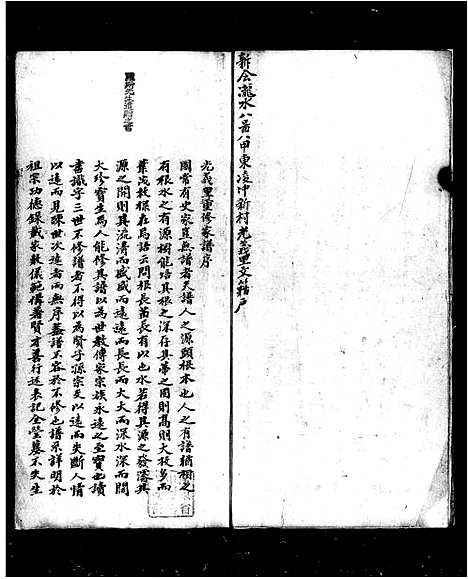 新会瀧水八啚八甲東凌冲新村光義里文籍户
光義里重修家譜序
國常有史家豈無譜者夫譜人之源頭根本也人之有譜猶樹之
有根水之有源樹能培其根之深存其蒂之固則高則大枝多而
葉茂枝根在焉語云問根長苗長有以也水若得其源之發濬其
源之開則其流清而盛盛而遠遠而長長而大大而深水深而闊
大珍寶生焉人能修其譜以為世教傳家宗族永遠之至寶也讀
書識字三世不修譜者不得以為賢子源宗支以遠而失斷人情
以遠而見疎世次遠者而無序蓋譜不容於不修也譜系詳明於
祖宗功德錄載家教儀範備著賢才善行述表記全塋墓不失生